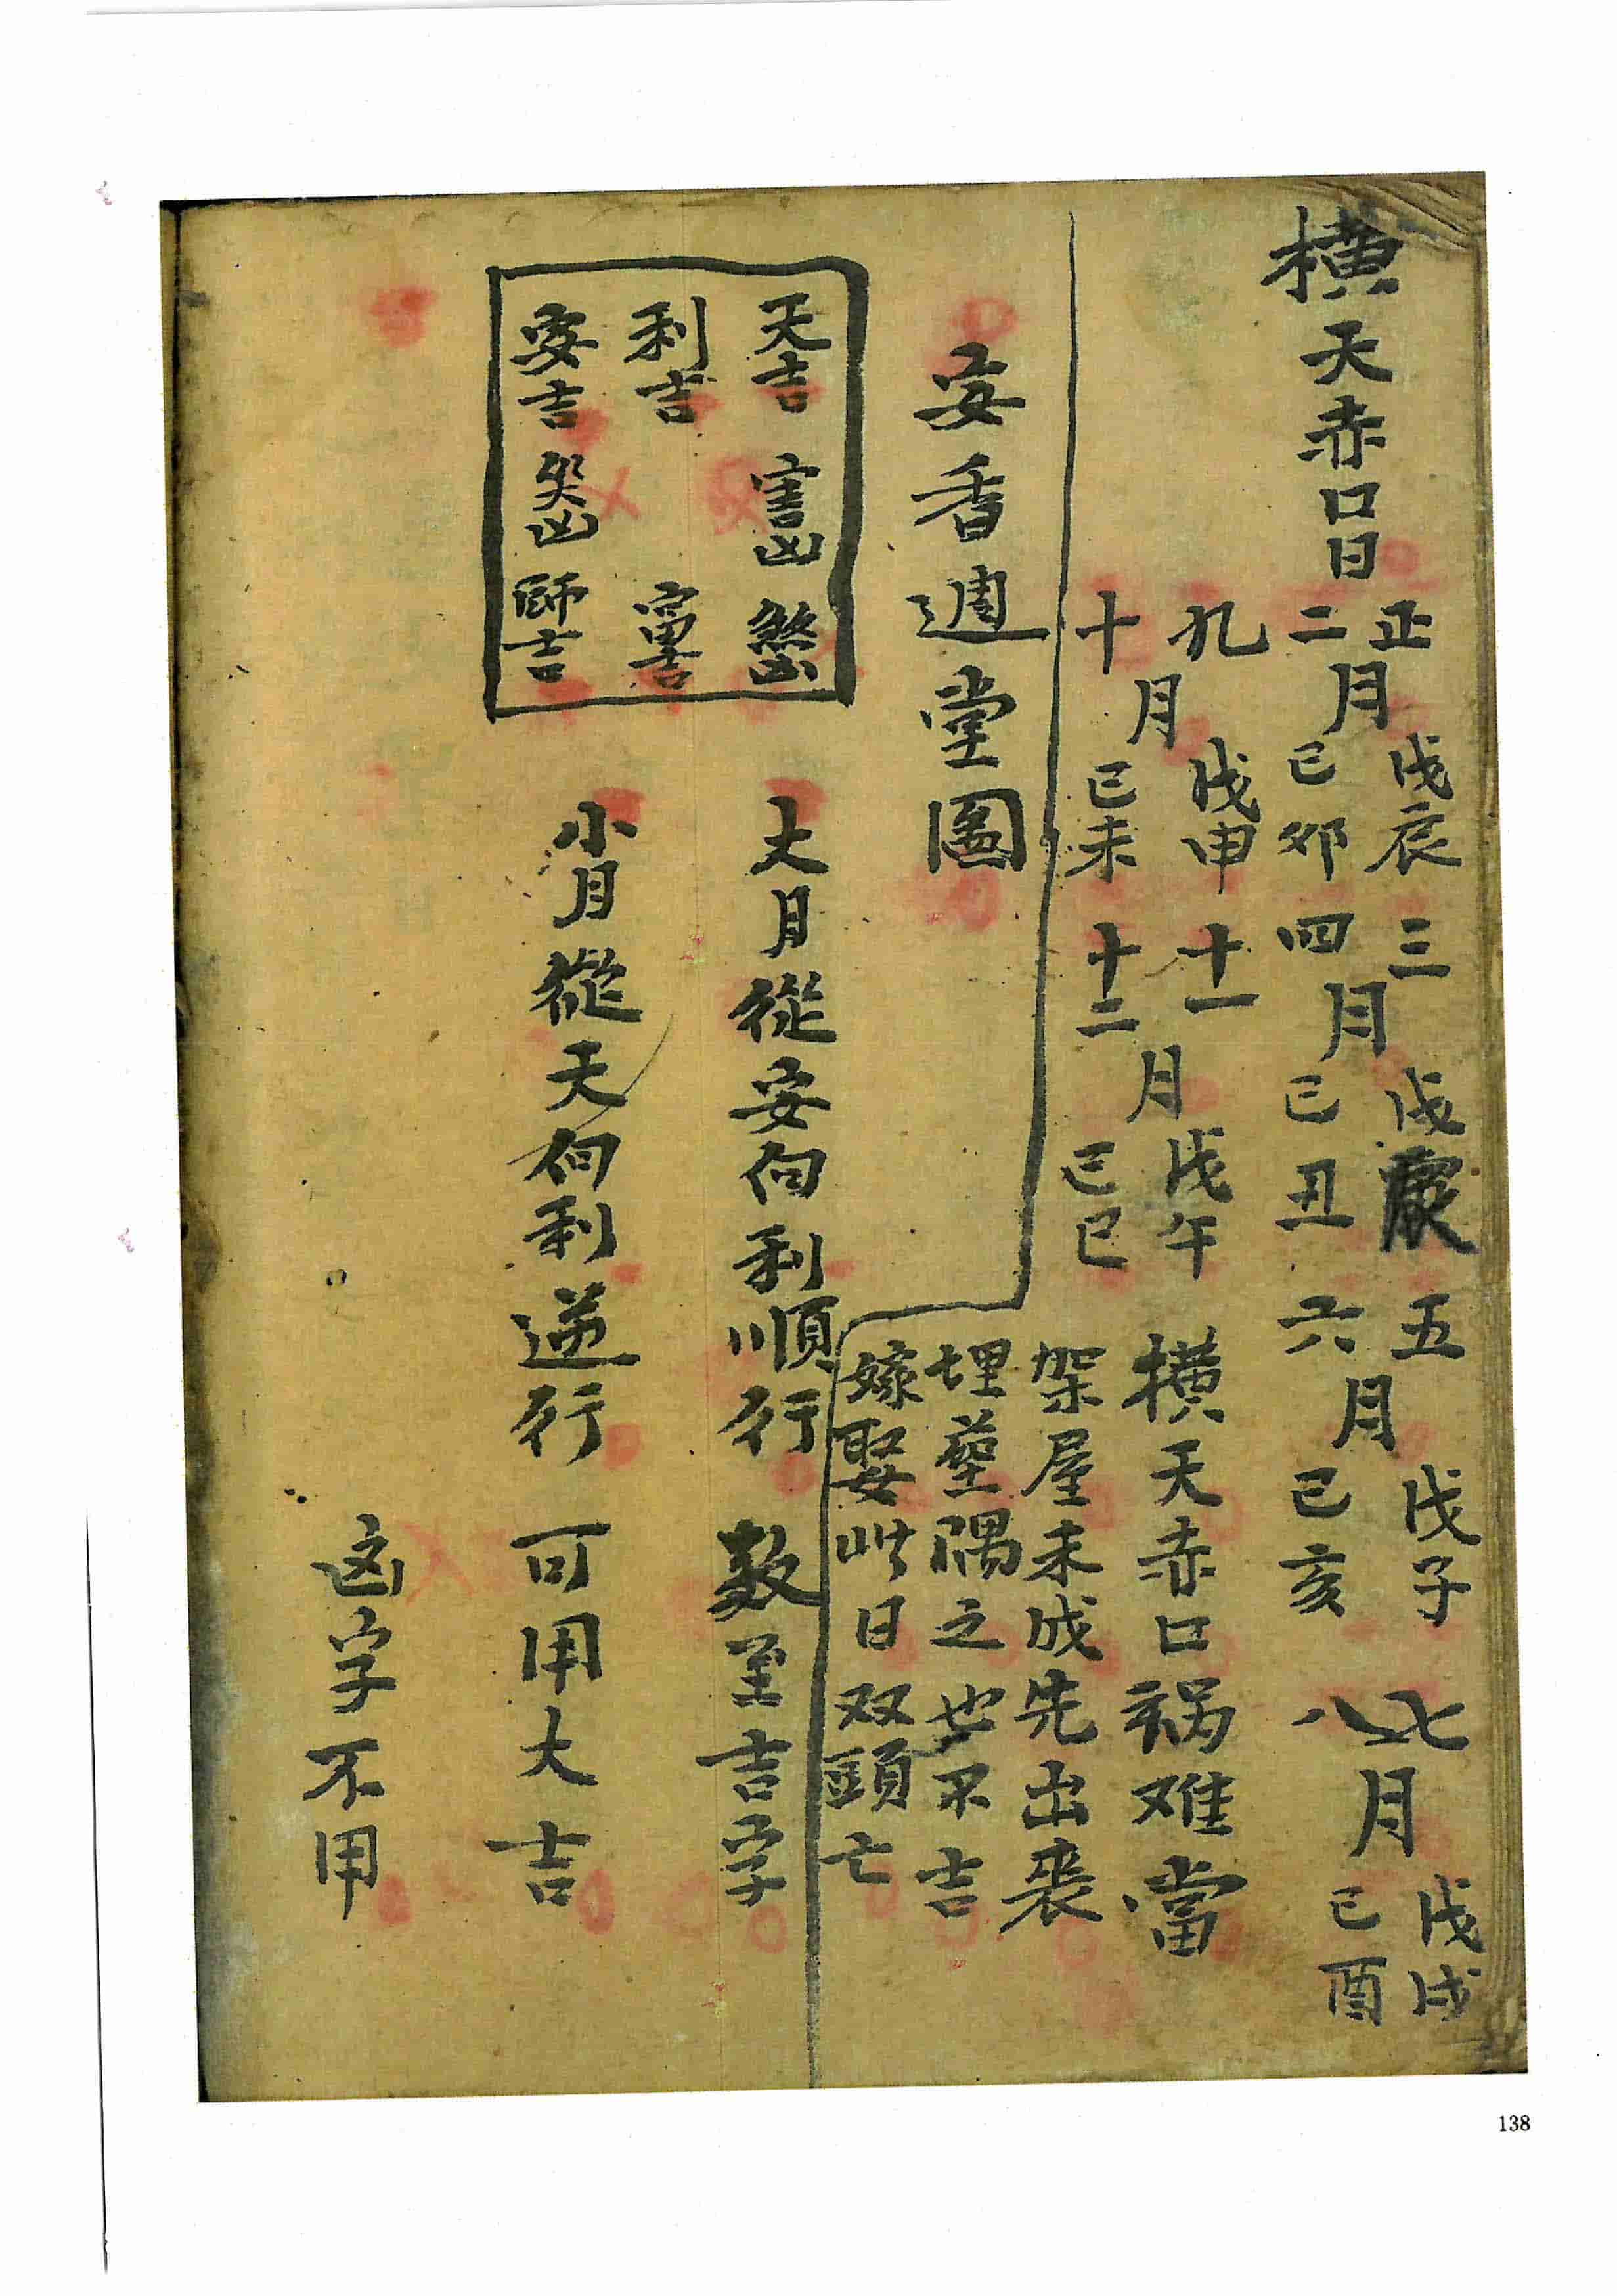 橫天赤口日
正二月戊辰己卯
三四月戊己丑
五六月戊子己亥
七八月戊戌己酉
九十月戊申己未
十一十二月戊午己巳
橫天赤口祸难當
架屋未成先出丧
埋塟隅之也不吉
嫁娶此日双頭亡
安香週堂圖
天吉 害凶 煞凶
利吉 富吉
安吉 災凶 師吉
大月從安向利順行 数至吉字
小月從天向利逆行 可用大吉
凶字不用
138